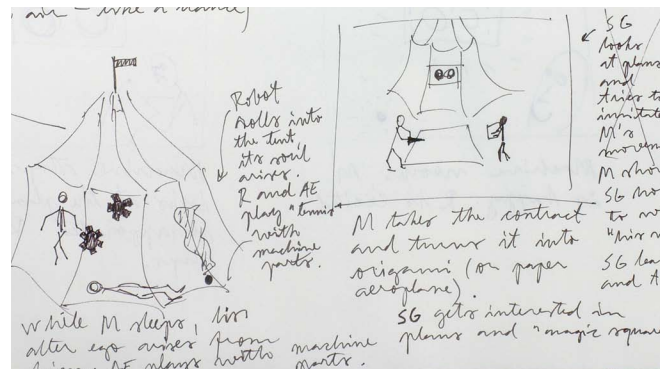 air - like a dance)
Robot
rolls into
the tent,
its soul
arises.
R and AE
play "tennis"
with
machine
parts.
While M sleeps, his
alter ego arises from
AE plays with machine
parts.
M takes the contract
and turns it into
origami (or paper
aeroplane).
SG gets interested in
plans and "magic square
SG
looks
at plans
and
tries to
immitate
M's
movem
M sho
SG ho
to
"his
SG lea
and A